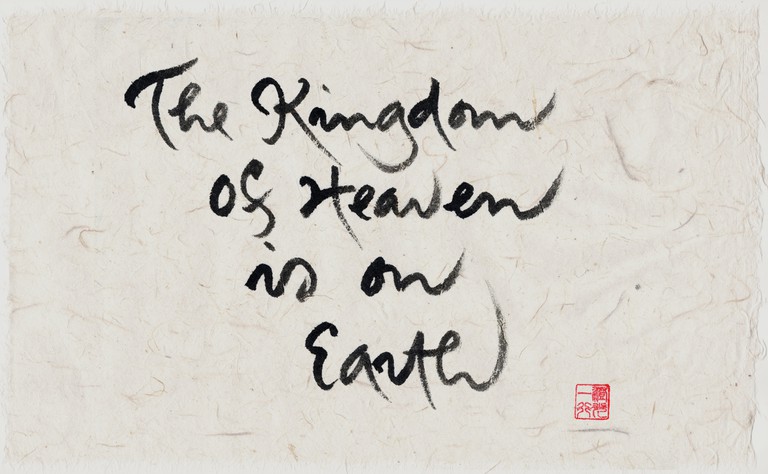 The Kingdom
of Heaven
is on
Earth